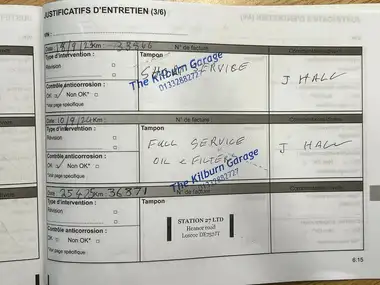 JUSTIFICATIFS D'ENTRETIEN (3/6)
VIN :
Date : Km : N° de facture Commentaires/divers
Type d'intervention : Tampon
Révision □ SERVICE
□ The Kilburn Garage
Contrôle anticorrosion : 01332882727 J HALL
OK □ Non OK* □
*Voir page spécifique
Date : 10/9/24 Km : N° de facture
Type d'intervention : Tampon
Révision □ FULL SERVICE
□ OIL & FILTER J HALL
Contrôle anticorrosion : The Kilburn Garage
OK □ Non OK* □ 01332882727
*Voir page spécifique
Date : 25 4 25 Km : 36871 N° de facture
Type d'intervention : Tampon
Révision □
□ STATION 27 LTD
Contrôle anticorrosion : Heanor road
OK □ Non OK* □ Loscoe DE757JT
*Voir page spécifique
6.15